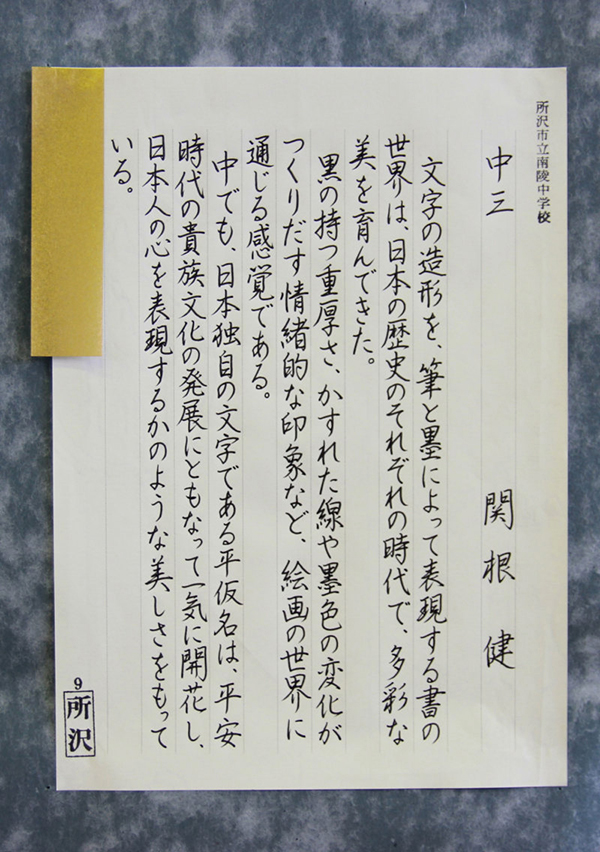 所沢市立南陵中学校
中三 関根 健
文字の造形を、筆と墨によって表現する書の
世界は、日本の歴史のそれぞれの時代で、多彩な
美を育んできた。
黒の持つ重厚さ、かすれた線や墨色の変化が
つくりだす情緒的な印象など、絵画の世界に
通じる感覚である。
中でも、日本独自の文字である平仮名は、平安
時代の貴族文化の発展にともなって一気に開花し、
日本人の心を表現するかのような美しさをもって
いる。
9
所沢